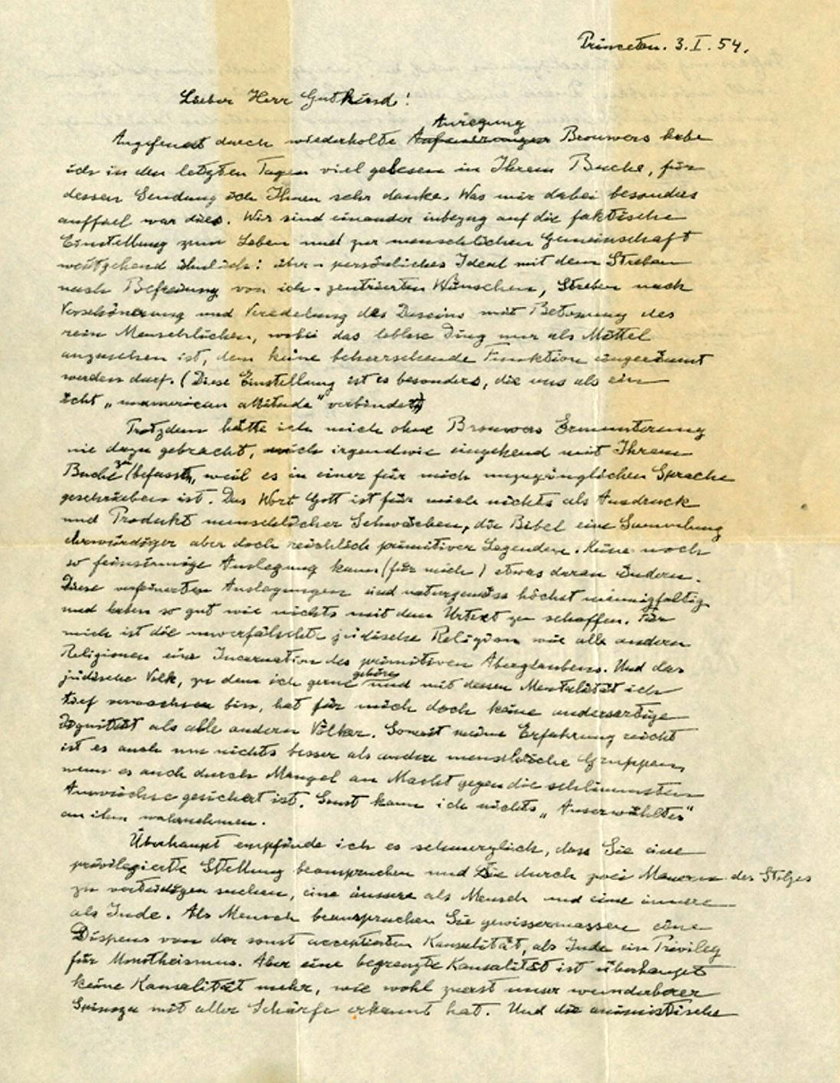 Princeton. 3. I. 54.
Lieber Herr Gutkind!
Anregung
Angefeuert durch wiederholte Brouwers habe
ich in den letzten Tagen viel gelesen in Ihrem Buche, für
dessen Sendung ich Ihnen sehr danke. Was mir dabei besonders
auffiel war dies. Wir sind einander inbezug auf die faktische
Einstellung zum Leben und zur menschlichen Gemeinschaft
weitgehend ähnlich: persönliches Ideal mit dem Streben
nach Befreiung von ich-zentrierten Wünschen, Streben nach
Verschönerung und Veredelung des Daseins mit Betonung des
rein Menschlichen, wobei das leblose Ding nur als Mittel
anzusehen ist, dem keine beherrschende Funktion eingeräumt
werden darf. (Diese Einstellung ist es besonders, die uns als ein
ächt „unamerican attitude" verbindet)
Trotzdem hätte ich mich ohne Brouwers Ermunterung
nie dazu gebracht, mich irgendwie eingehend mit Ihrem
Buche zu befassen, weil es in einer für mich unzugänglichen Sprache
geschrieben ist. Das Wort Gott ist für mich nichts als Ausdruck
und Produkt menschlicher Schwächen, die Bibel eine Sammlung
ehrwürdiger aber doch reichlich primitiver Legenden. Keine noch
so feinsinnige Auslegung kann (für mich) etwas daran ändern.
Diese verfeinerten Auslegungen sind naturgemäss höchst mannigfaltig
und haben so gut wie nichts mit dem Urtext zu schaffen. Für
mich ist die unverfälschte jüdische Religion wie alle anderen
Religionen eine Incarnation des primitiven Aberglaubens. Und das
jüdische Volk, zu dem ich gerne gehöre und mit dessen Mentalität ich
tief verwachsen bin, hat für mich doch keine andersartige
Dignität als alle anderen Völker. Soweit meine Erfahrung reicht
ist es auch um nichts besser als andere menschliche Gruppen,
wenn es auch durch Mangel an Macht gegen die schlimmsten
Auswüchse gesichert ist. Sonst kann ich nichts „Auserwähltes"
an ihm wahrnehmen.
Überhaupt empfinde ich es schmerzlich, dass Sie eine
privilegierte Stellung beanspruchen und Sie durch zwei Mauern des Stolzes
zu verteidigen suchen, eine äussere als Mensch und eine innere
als Jude. Als Mensch beanspruchen Sie gewissermassen eine
Dispens von der sonst acceptierten Kausalität, als Jude ein Privileg
für Monotheismus. Aber eine begrenzte Kausalität ist überhaupt
keine Kausalität mehr, wie wohl zuerst unser wunderbarer
Spinoza mit aller Schärfe erkannt hat. Und die animistische